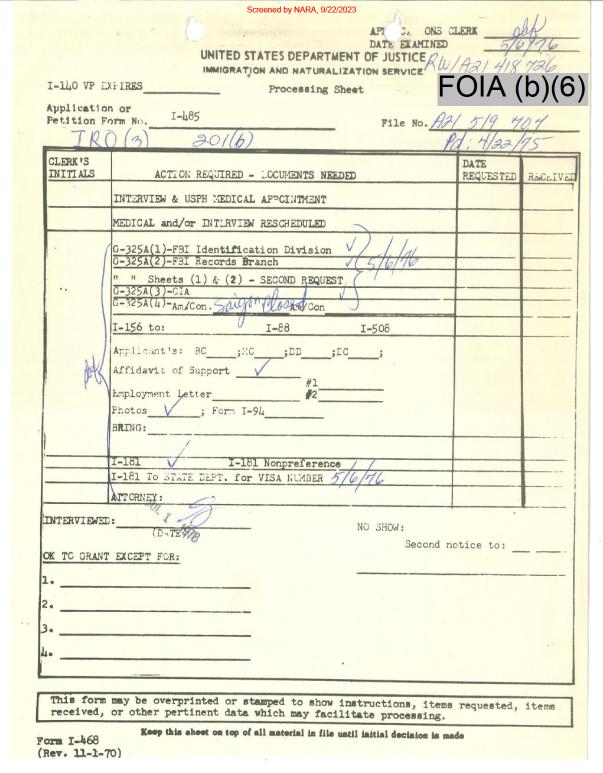 Screened by NARA, 9/22/2023
ONS CLERK
DATE EXAMINED 5/6/76
UNITED STATES DEPARTMENT OF JUSTICE
IMMIGRATION AND NATURALIZATION SERVICE RW/A21 418 726
I-140 VP EXPIRES Processing Sheet FOIA (b)(6)
Application or
Petition Form No. I-485 File No. A21 519 707
IRO(3) 201(b) Pd: 4/22/75
CLERK'S INITIALS ACTION REQUIRED - DOCUMENTS NEEDED DATE REQUESTED RECEIVED
INTERVIEW & USPH MEDICAL APPOINTMENT
MEDICAL and/or INTERVIEW RESCHEDULED
G-325A(1)-FBI Identification Division ✓
G-325A(2)-FBI Records Branch 5/6/76
" " Sheets (1) & (2) - SECOND REQUEST
G-325A(3)-CIA ✓
G-325A(4)-Am/Con. Saigon Closed Am/Con
I-156 to: I-88 I-508
Applicant's: BC ;MC ;DD ;DC ;
Affidavit of Support ✓
#1
Employment Letter #2
Photos ✓ ; Form I-94
BRING:
I-181 ✓ I-181 Nonpreference
I-181 To STATE DEPT. for VISA NUMBER 5/6/76
ATTORNEY:
INTERVIEWED: NO SHOW:
(DATE)
Second notice to:
OK TO GRANT EXCEPT FOR:
1.
2.
3.
4.
This form may be overprinted or stamped to show instructions, items requested, items
received, or other pertinent data which may facilitate processing.
Keep this sheet on top of all material in file until initial decision is made
Form I-468
(Rev. 11-1-70)